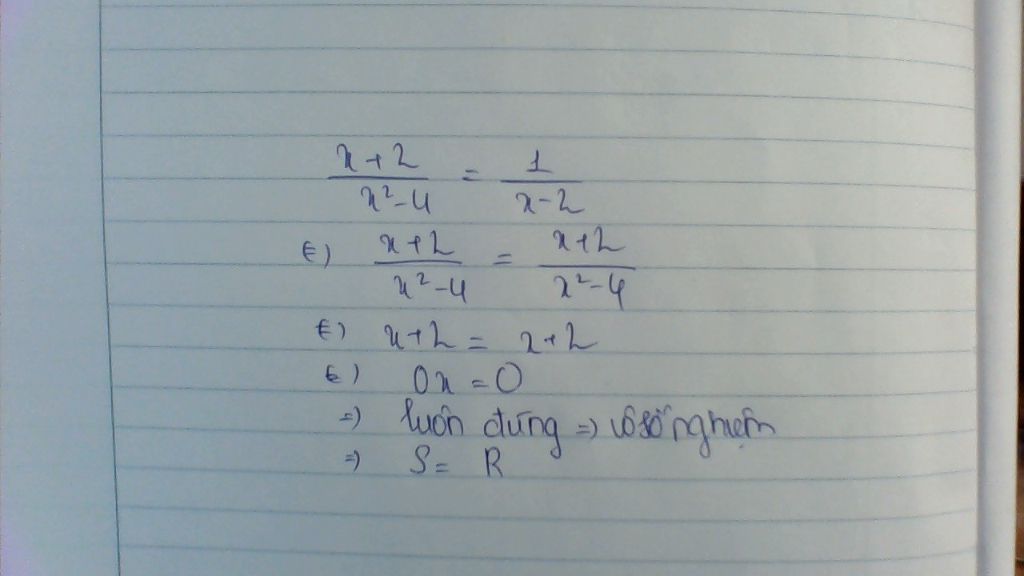 x+2/x²-4 = 1/x-2
⇔) x+2/x²-4 = x+2/x²-4
⇔) x+2 = x+2
⇔) 0x = 0
=) luôn đúng =) vô số nghiệm
=) S = R